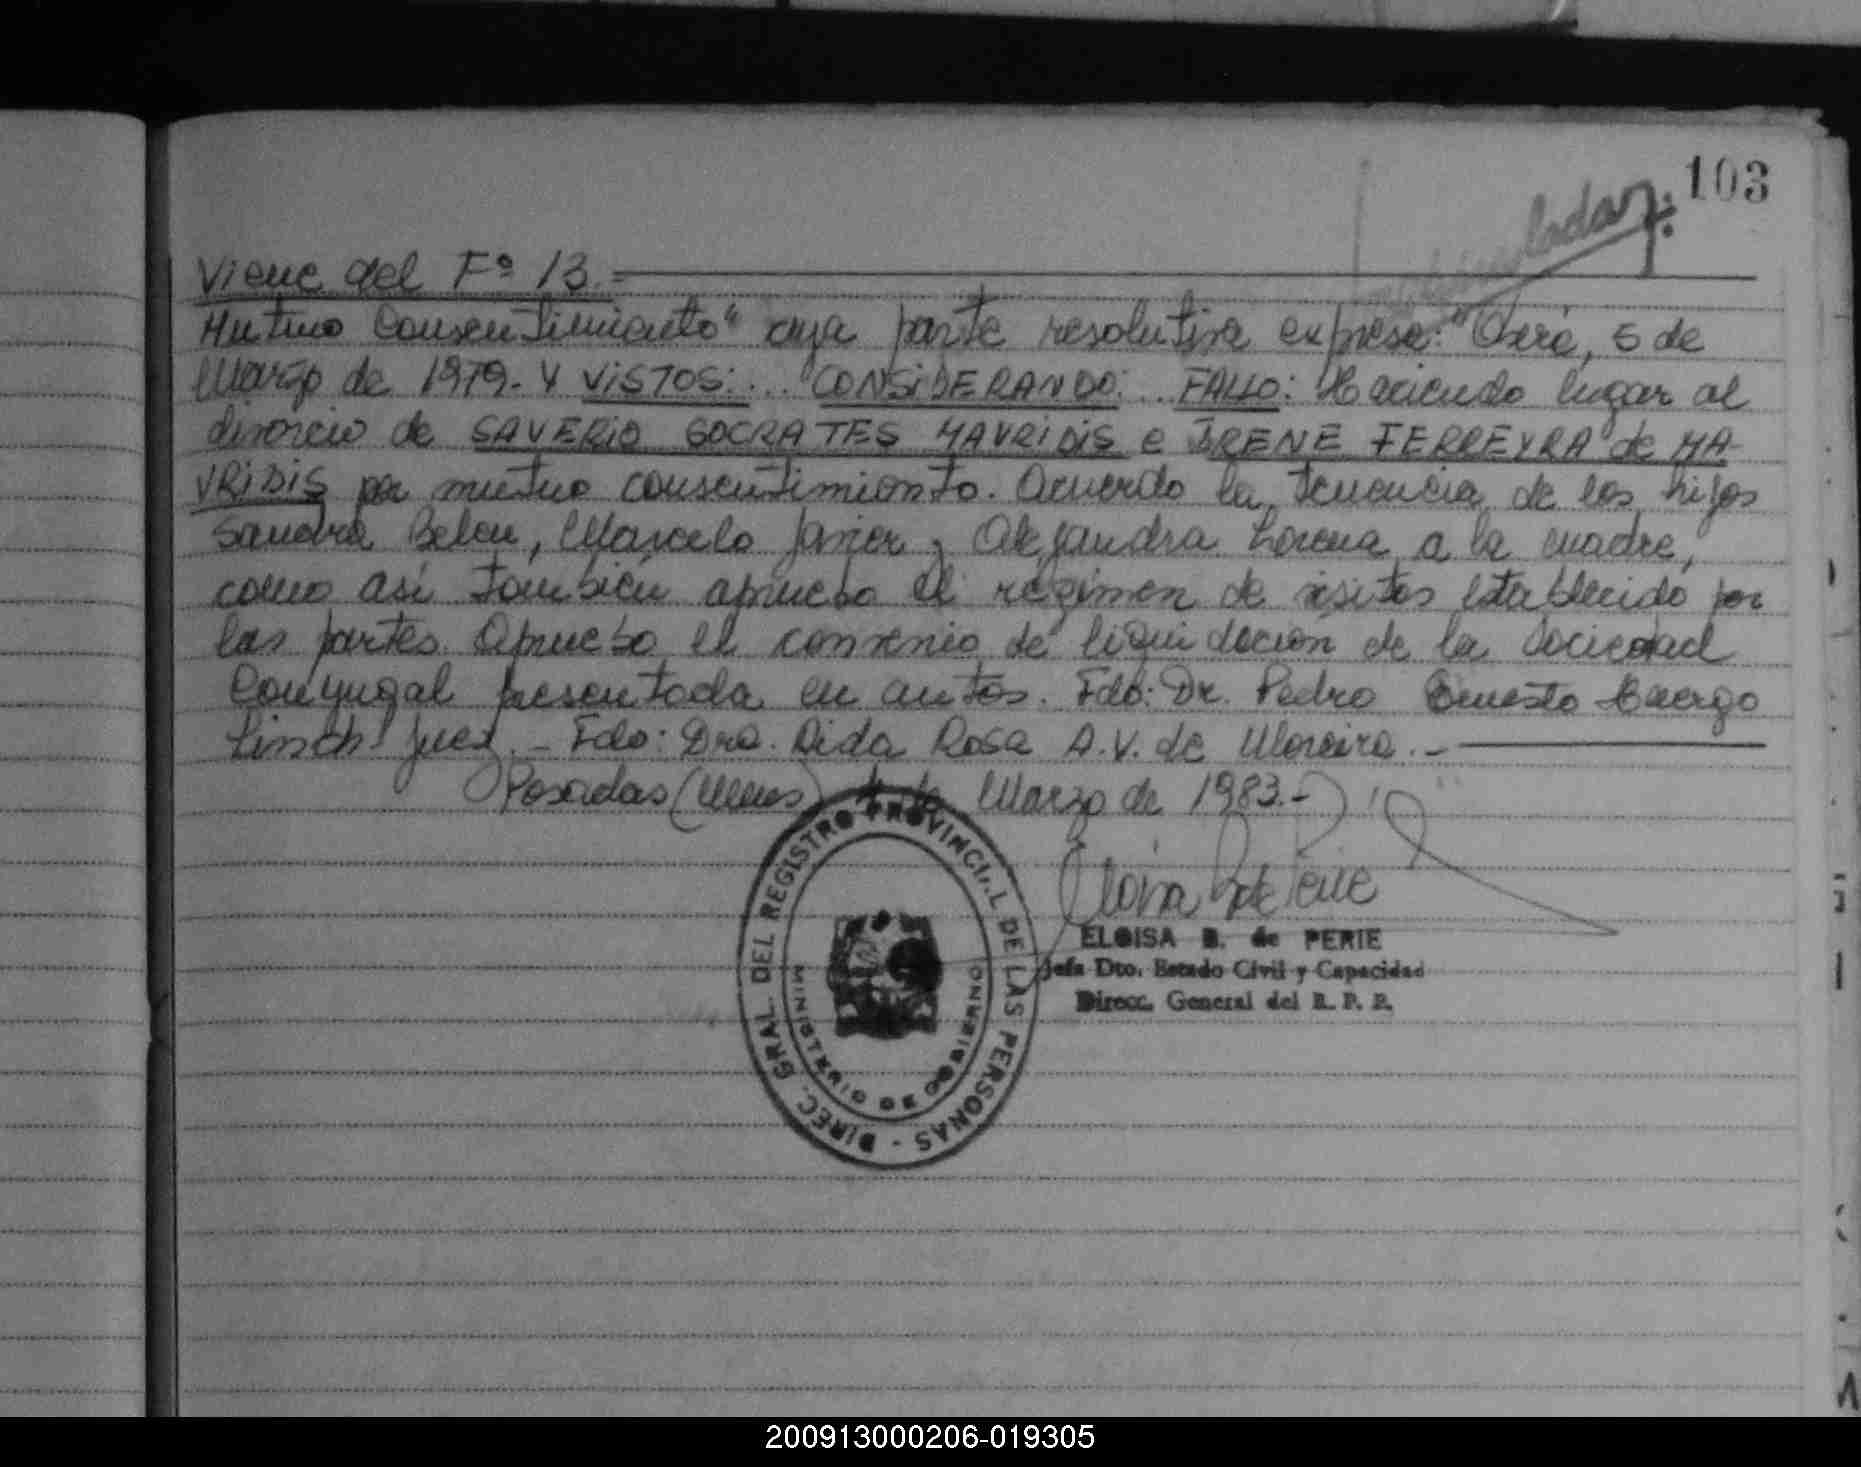 103
Viene del Fº 13.=
Mutuo Consentimiento" cuya parte resolutiva expresa: "Oberá, 5 de
Marzo de 1979. Y VISTOS:... CONSIDERANDO:... FALLO: Haciendo lugar al
divorcio de SAVERIO SOCRATES MAVRIDIS e IRENE FERREYRA de MA-
VRIDIS por mutuo consentimiento. Acuerdo la tenencia de los hijos
Sandra Belen, Marcelo Javier y Alejandra Lorena a la madre,
como así también apruebo el régimen de visitas establecido por
las partes. Apruebo el convenio de liquidación de la Sociedad
Conyugal presentada en autos. Fdo: Dr. Pedro Ernesto Huergo
Linch Juez.- Fdo: Dra. Aida Rosa A.V. de Moreira.-
Posadas (Mnes) de Marzo de 1983.-
DIREC. GRAL. DEL REGISTRO PROVINCIAL DE LAS PERSONAS -
MINISTERIO DE GOBIERNO
ELOISA B. de PERIE
Jefa Dto. Estado Civil y Capacidad
Direcc. General del R. P. P.
200913000206-019305